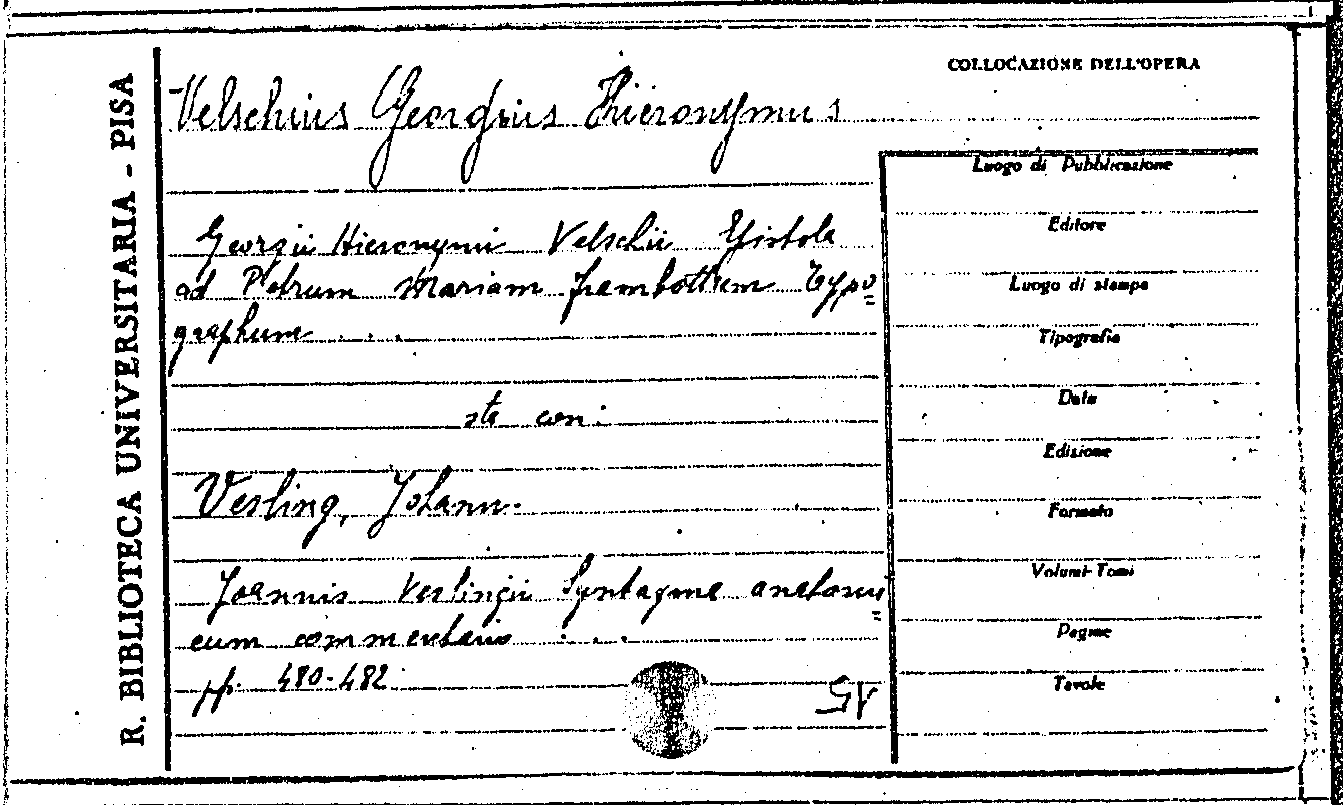 R. BIBLIOTECA UNIVERSITARIA - PISA
COLLOCAZIONE DELL'OPERA
Velschius Georgius Hieronymus
Georgii Hieronymi Velschii Epistola
ad Petrum Mariam Frambottum Typo=
graphum ....
sta con:
Vesling, Johann.
Joannis Veslingii Syntagma anatomi=
cum commentario ....
pp. 480-482
Luogo di Pubblicazione
Editore
Luogo di stampa
Tipografia
Data
Edizione
Formato
Volumi-Tomi
Pagine
Tavole